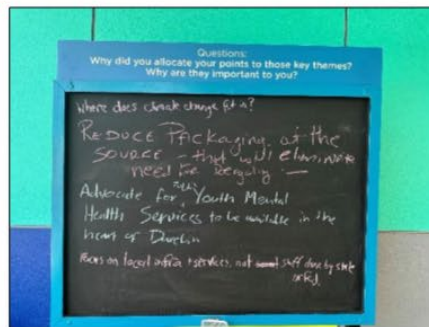 Questions:
Why did you allocate your points to those key themes?
Why are they important to you?
Where does climate change fit in?
REDUCE PACKAGING at the
SOURCE - that will eliminate
need for recycling -
Advocate for Youth Mental
Health Services to be available in the
heart of
Focus on local infra + services, not stuff done by state
or fed.